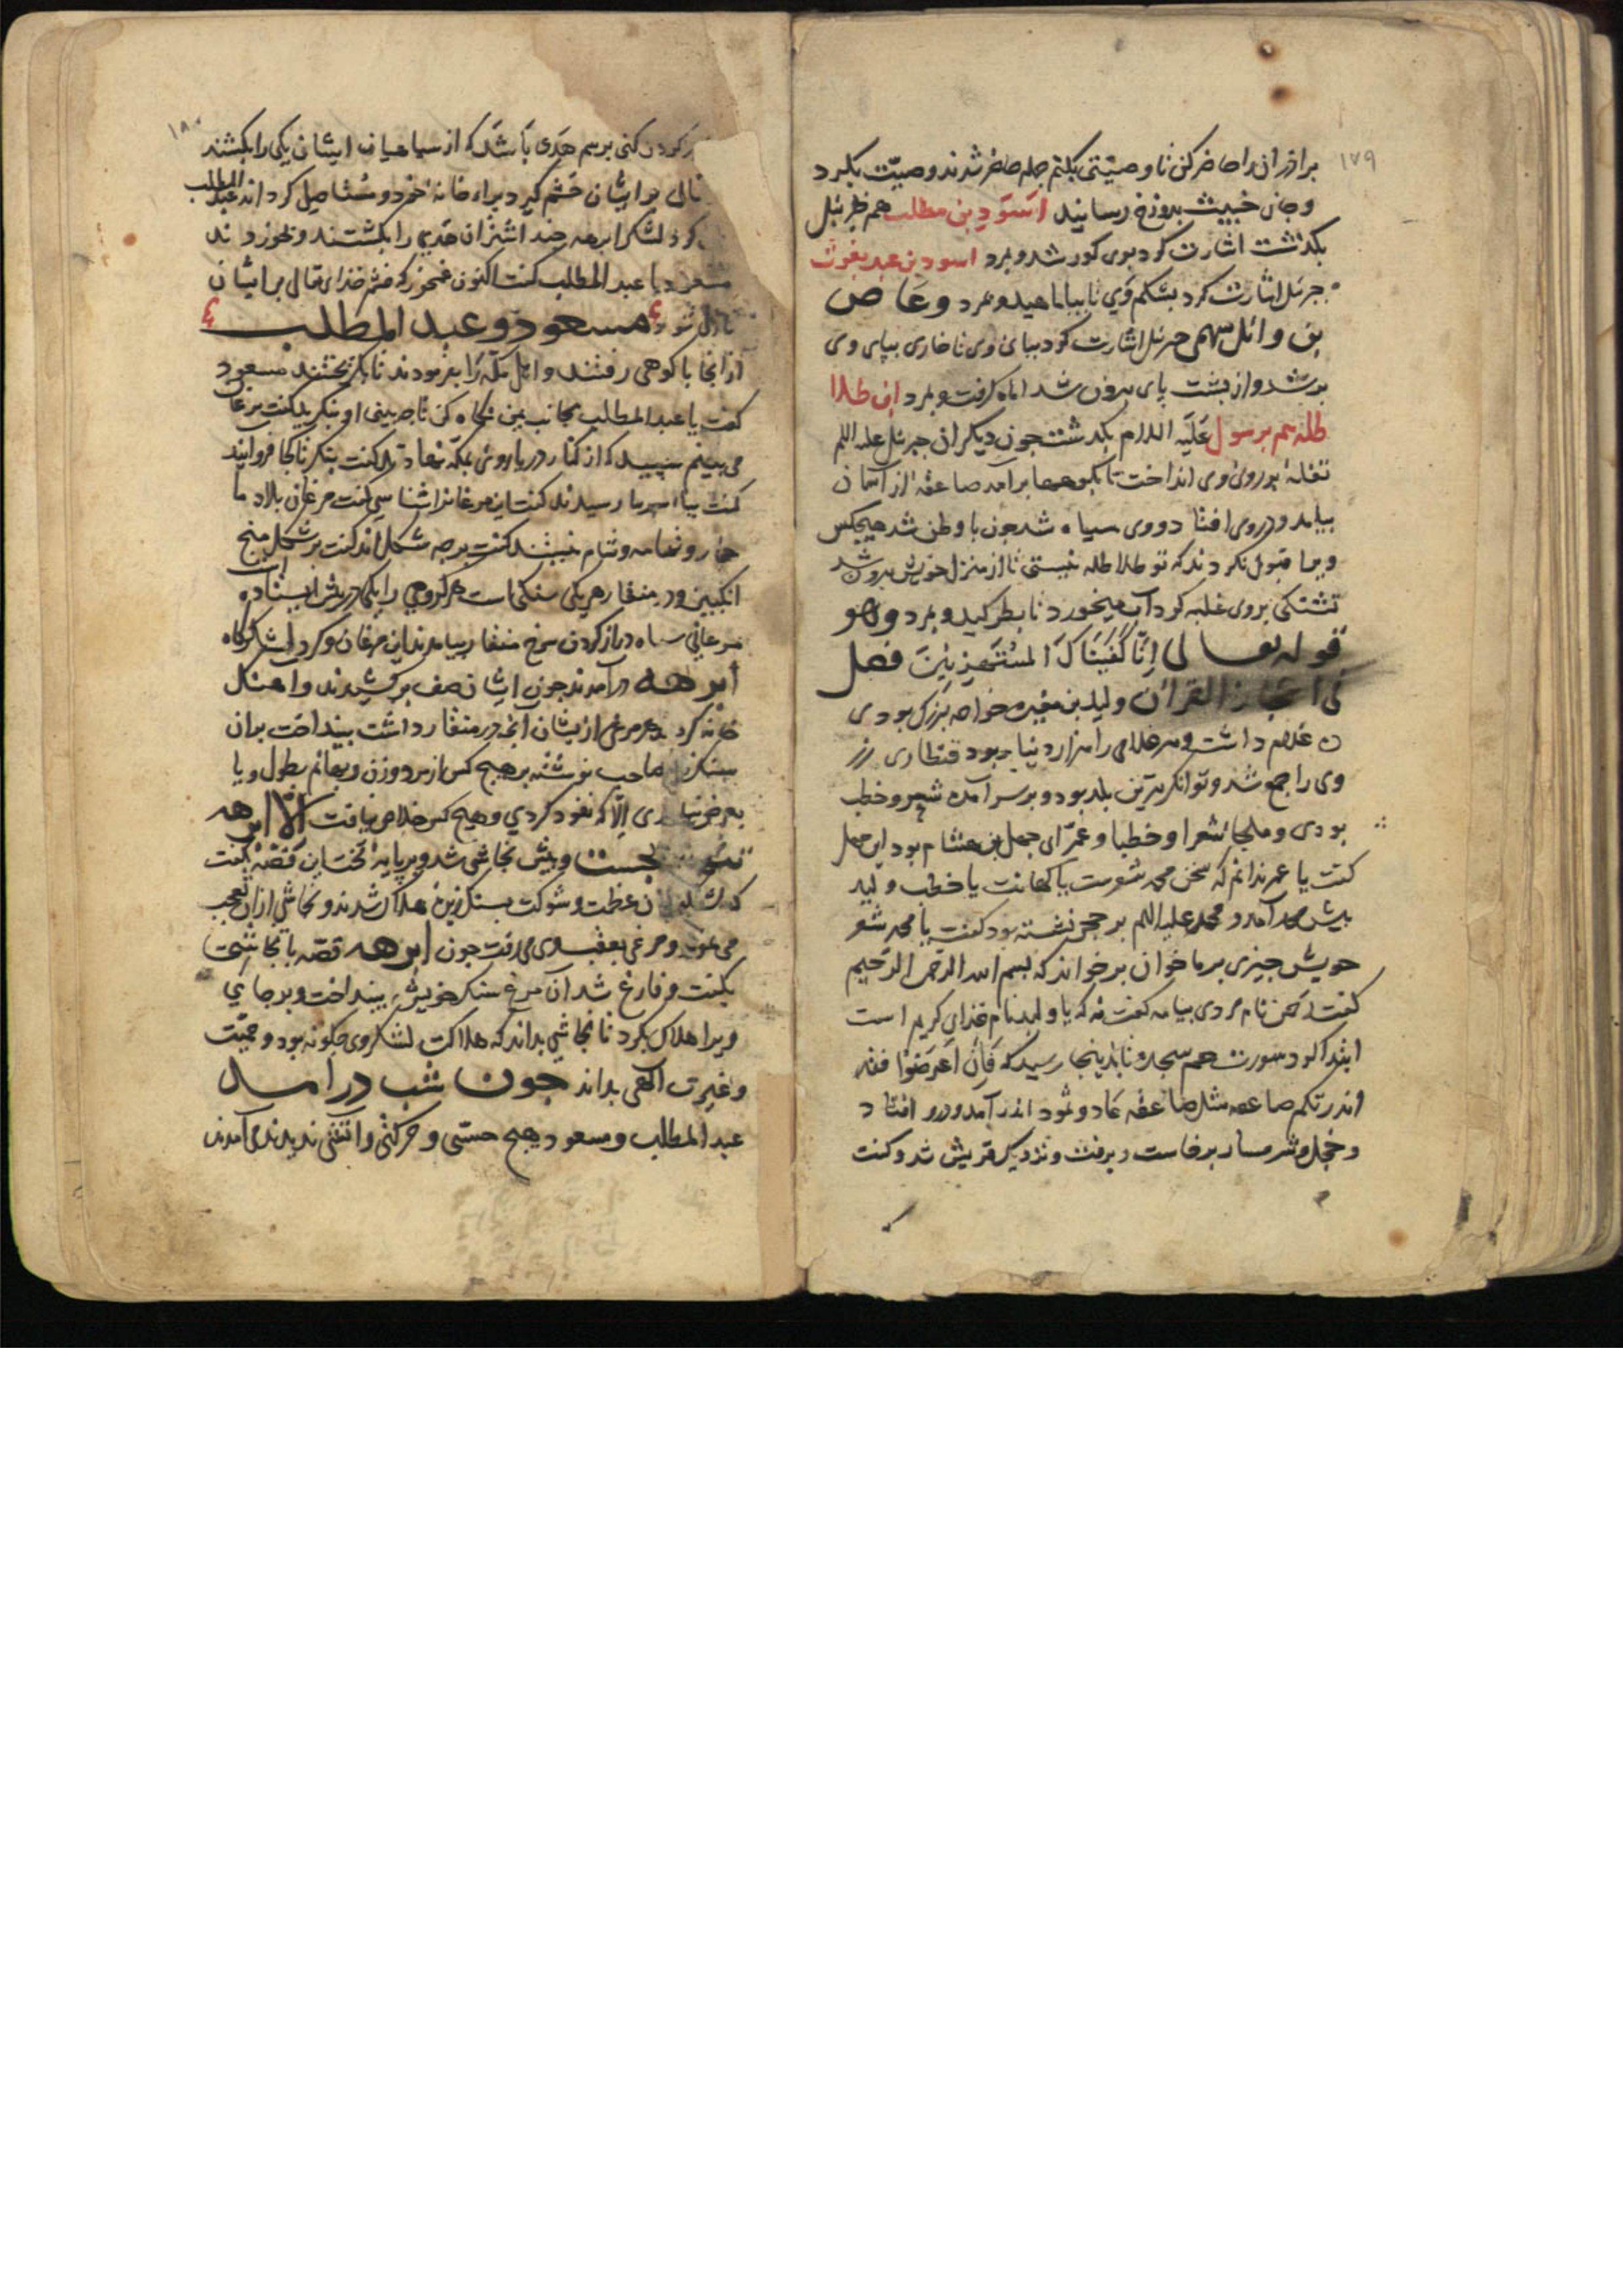 ۱۷۹
برادران را حاضر کن تا وصیتی بکنم جمله حاضر شدند وصیّت بکرد
وجان خبیث بدوزخ رسانید اسَوَد بن مطلب هم جبرئیل
بکذشت اشارت کرد بوی کور شد و بمرد اسود بن عبد یغوث
جبرئل اشارت کرد بشکم وَی تا بیاماهید و بمرد وعَاص
بن وائل سهمی جبرئل اشارت کرد بپای وی تا خاری بپای وی
بر شد واز پشت پای بیرون شد اماه کرفت و بمرد ابن طلا
طله هم برسول عَلَیه السلام بکدشت جون دیکران جبرئل علیه السلم
تفلهٔ بر روی وی انداخت تا بکوهها برآمد صاعقهٔ از آسمان
بیامد و در وی افتاد و وی سیاه شد جون با وطن شد هیجکس
ویرا قبول نکردند که تو طلا طله نیستی تا از منزل خویش بیرون شد
تشنکی بر وی غلبه کرد آب میخورد تا بطرکید و بمرد وهو
قوله تعالی اِنَّا کَفَینَاکَ المُستَهزِئینَ فصل
فی اعجاز القرآن ولید بن مغیره خواجه بزرک بودی
ده غلام داشت و هر غلامی را هزار دنیار بود قنطاری زر
وی را جمع شد و توانکرترین بلد بود و بر سر آمده شعر و خطب
بودی و ملجا شعرا و خطبا و عمّ ابی جهل بن هشام بود ابن جهل
کفت یا عم ندانم که سخن محمد شعرست یا کهانت یا خطب ولید
بیش محمد آمد و محمد علیه السلم بر حجر نشسته بود کفت یا محمد شعر
خویش جیزی بر ما خوان بر خواند که بسم الله الرحمن الرّحیم
کفت رحمن نام مردی بیامه کفت نه که یا ولید نام خدای کریم است
ابتدا کرد سورت حم سجده تا بدینجا رسید که فَاِن اَعرَضُوا فقد
انذرتکم صاعقه مثل صاعقه عَاد و ثمود اندر آمد و در افتاد
و خجل و شرمسار برخاست و برفت و نزدیک قریش شد و کفت
۱۸۰
کردن کنی برسم هَدی باشد که از سیاهیان ایشان یکی را بکشند
تعالی بر ایشان خشم کیرد براء خانهٔ خود و مستاصل کرداند عبد المطلب
کرد لشکر ابرهه جند اشتران هدی را بکشتند و بخوردند
مسعود با عبد المطلب کفت اکنون غمخور که خشم خدای تعالی بر ایشان
نازل شود مسعود و عبد المطلب
از انجا با کوهی رفتند و اهل مکّه را بفرمودند تا بکریختند مسعود
کفت یا عبد المطلب بجانب یمن نکاه کن تا چه بینی او بنکرید کفت مرغان
می بینم سپید که از کنار دریا روی بمکّه نهادند کفت بنکر تا کجا فروایند
کفت بیامدند بر سر ما رسیدند کفت این مرغانرا شناسی کفت مرغان بلاد ما
حجاز و تهامه و شام نیستند کفت بر چه شکل اند کفت بر شکل منج
انکبین و در منقار هر یکی سنکی است هر کروهی را یکی در پیش ایستاده
مرغانی سیاه دراز کردن سرخ منقار بیامدند این مرغان و کرد لشکرکاه
ابرهه درآمدند جون ایشان صف بر کشیدند و اهنک
خانه کرد هر مرغی از یشان آنچه در منقار داشت بینداخت بران
سنک نام صاحب نوشته بر هیچ کس از مرد و زن و بهائم بطول و یا
بعرض نیامدی اِلّا که نفوذ کردی و هیچ کس خلاص نیافت الّا ابرهه
بجست و بیش نجاشی شد و بر پایهٔ تخت این قصّه بکفت
عظمت و شوکت بسنک زیزهٔ هلاک شدند و نجاشی از ان تعجب
می نمود و مرغی بعقب وی می رفت جون ابرهه قصّه با نجاشی
بکفت و فارغ شد آن مرغ سنک خویش بینداخت و بر جای
ویرا هلاک بکرد تا نجاشی بداند که هلاکت لشکر وی چکونه بود و حمیّت
و غیرت الهی بداند جون شب درامد
عبد المطلب و مسعود هیچ حسّی و حرکتی و آتشی ندیدند می آمدند